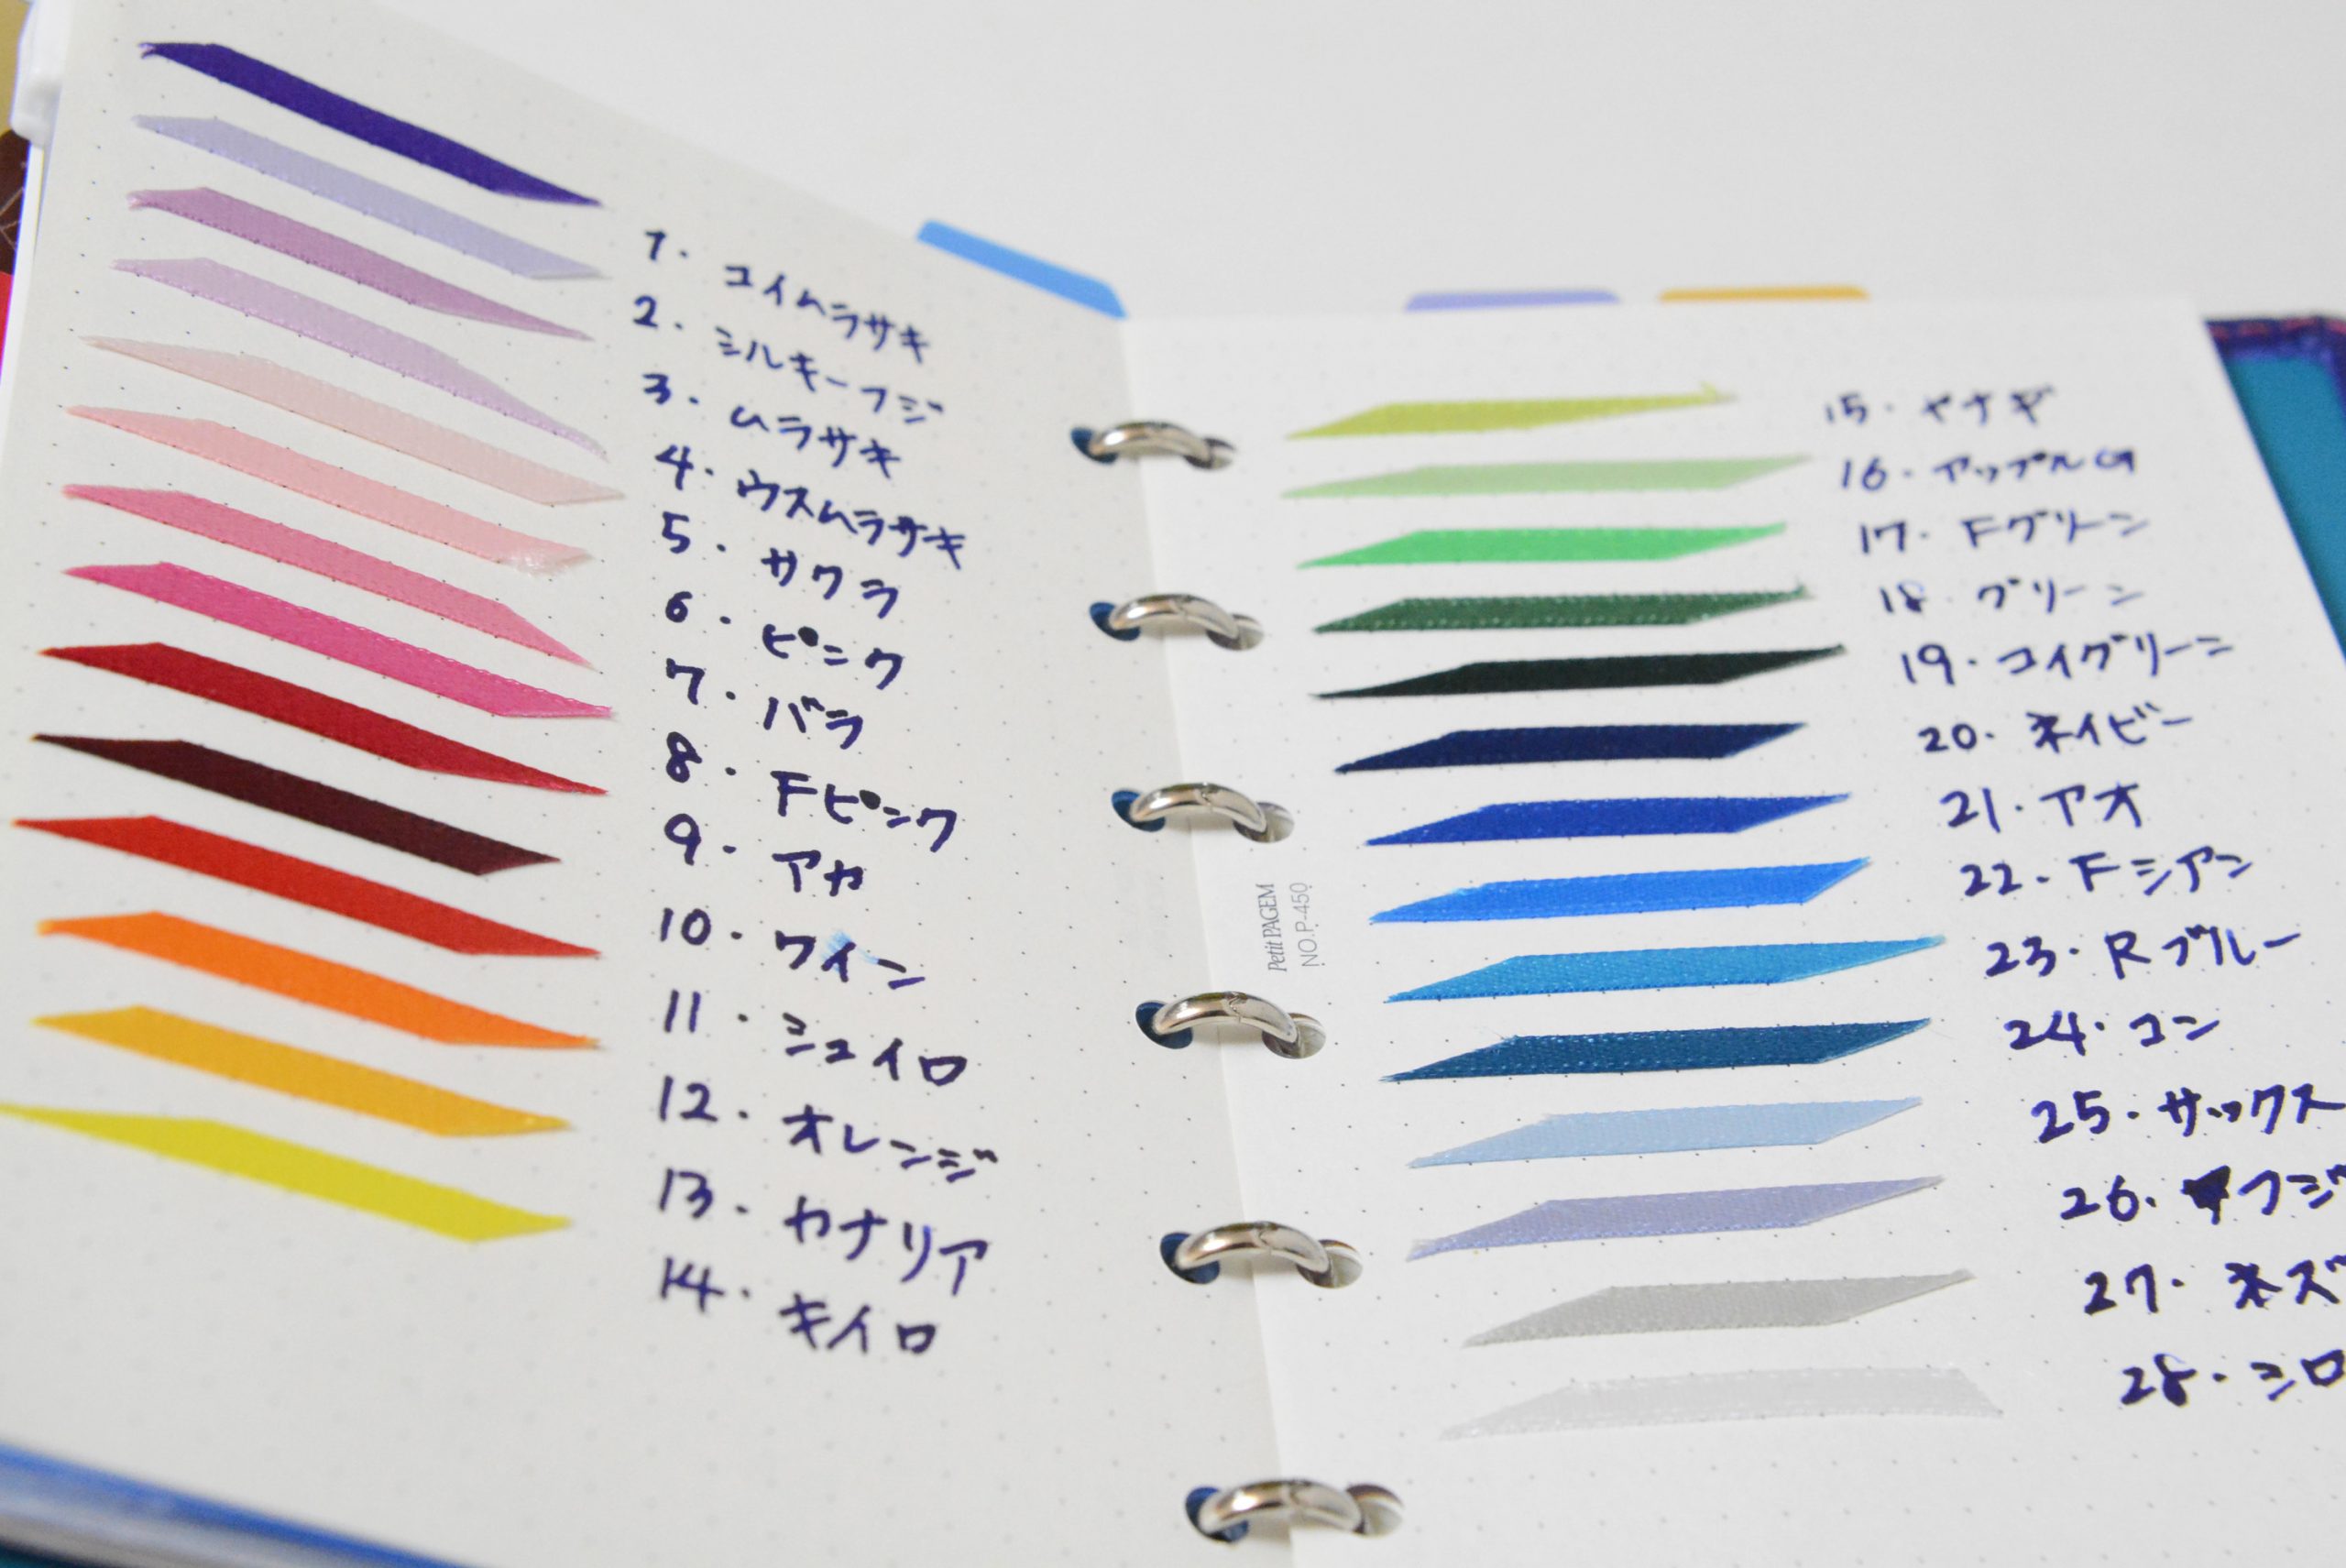 1. コイムラサキ
2. シルキーフジ
3. ムラサキ
4. ウスムラサキ
5. サクラ
6. ピンク
7. バラ
8. Fピンク
9. アカ
10. ワイン
11. シュイロ
12. オレンジ
13. カナリア
14. キイロ
Petit PAGEM
NO.P-450
15. ヤナギ
16. アップルG
17. Fグリーン
18. グリーン
19. コイグリーン
20. ネイビー
21. アオ
22. Fシアン
23. Rブルー
24. コン
25. サックス
26. フジ
27. ネズ
28. シロ